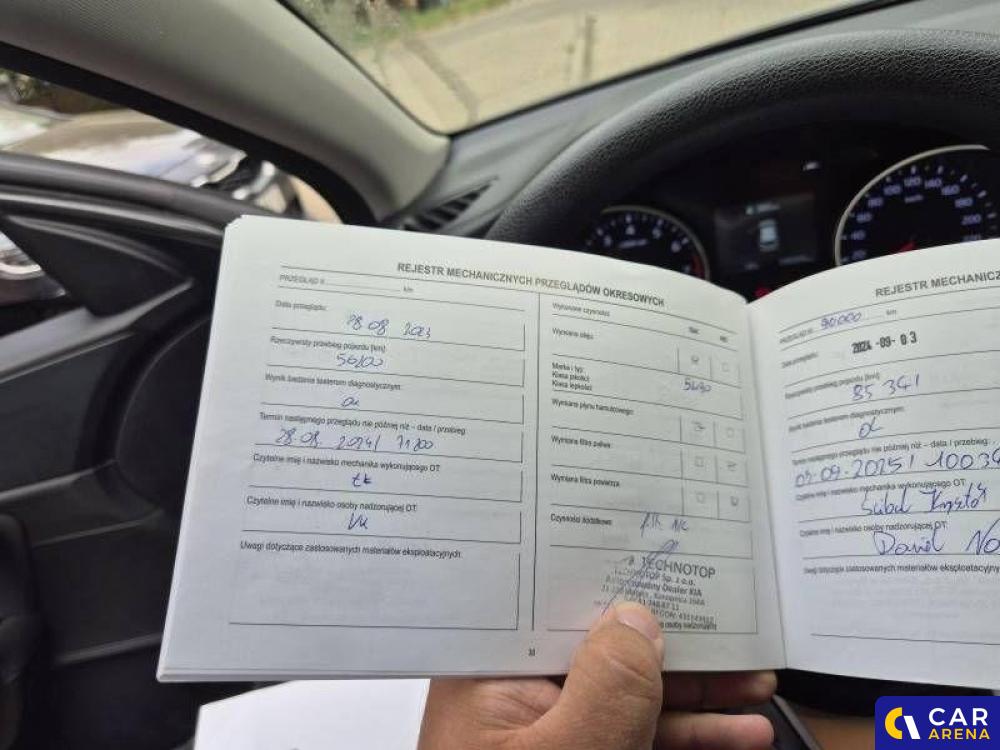 REJESTR MECHANICZNYCH PRZEGLĄDÓW OKRESOWYCH
PRZEGLĄD II km
Data przeglądu:
28.08 2023
Rzeczywisty przebieg pojazdu [km]:
56200
Wynik badania testerem diagnostycznym:
ok
Termin następnego przeglądu nie później niż – data / przebieg:
28.08. 2024/ 71200
Czytelne imię i nazwisko mechanika wykonującego OT:
Czytelne imię i nazwisko osoby nadzorującej OT:
Uwagi dotyczące zastosowanych materiałów eksploatacyjnych:
Wykonane czynności:
TAK NIE
Wymiana oleju:
Marka i typ:
Klasa jakości:
Klasa lepkości:
5W30
Wymiana płynu hamulcowego:
Wymiana filtra paliwa:
Wymiana filtra powietrza:
Czynności dodatkowe:
TECHNOTOP
TECHNOTOP Sp. z o.o.
Autoryzowany Dealer KIA
osoby nadzorującej
30
REJESTR MECHANICZ
PRZEGLĄD Nr 90000 km
Data przeglądu:
2024 -09- 03
Rzeczywisty przebieg pojazdu [km]:
85 341
Wynik badania testerem diagnostycznym:
ok
Termin następnego przeglądu nie później niż – data / przebieg:
03.09.2025/ 10034
Czytelne imię i nazwisko mechanika wykonującego OT:
Czytelne imię i nazwisko osoby nadzorującej OT:
Dawid No
Uwagi dotyczące zastosowanych materiałów eksploatacyjny
CAR
ARENA